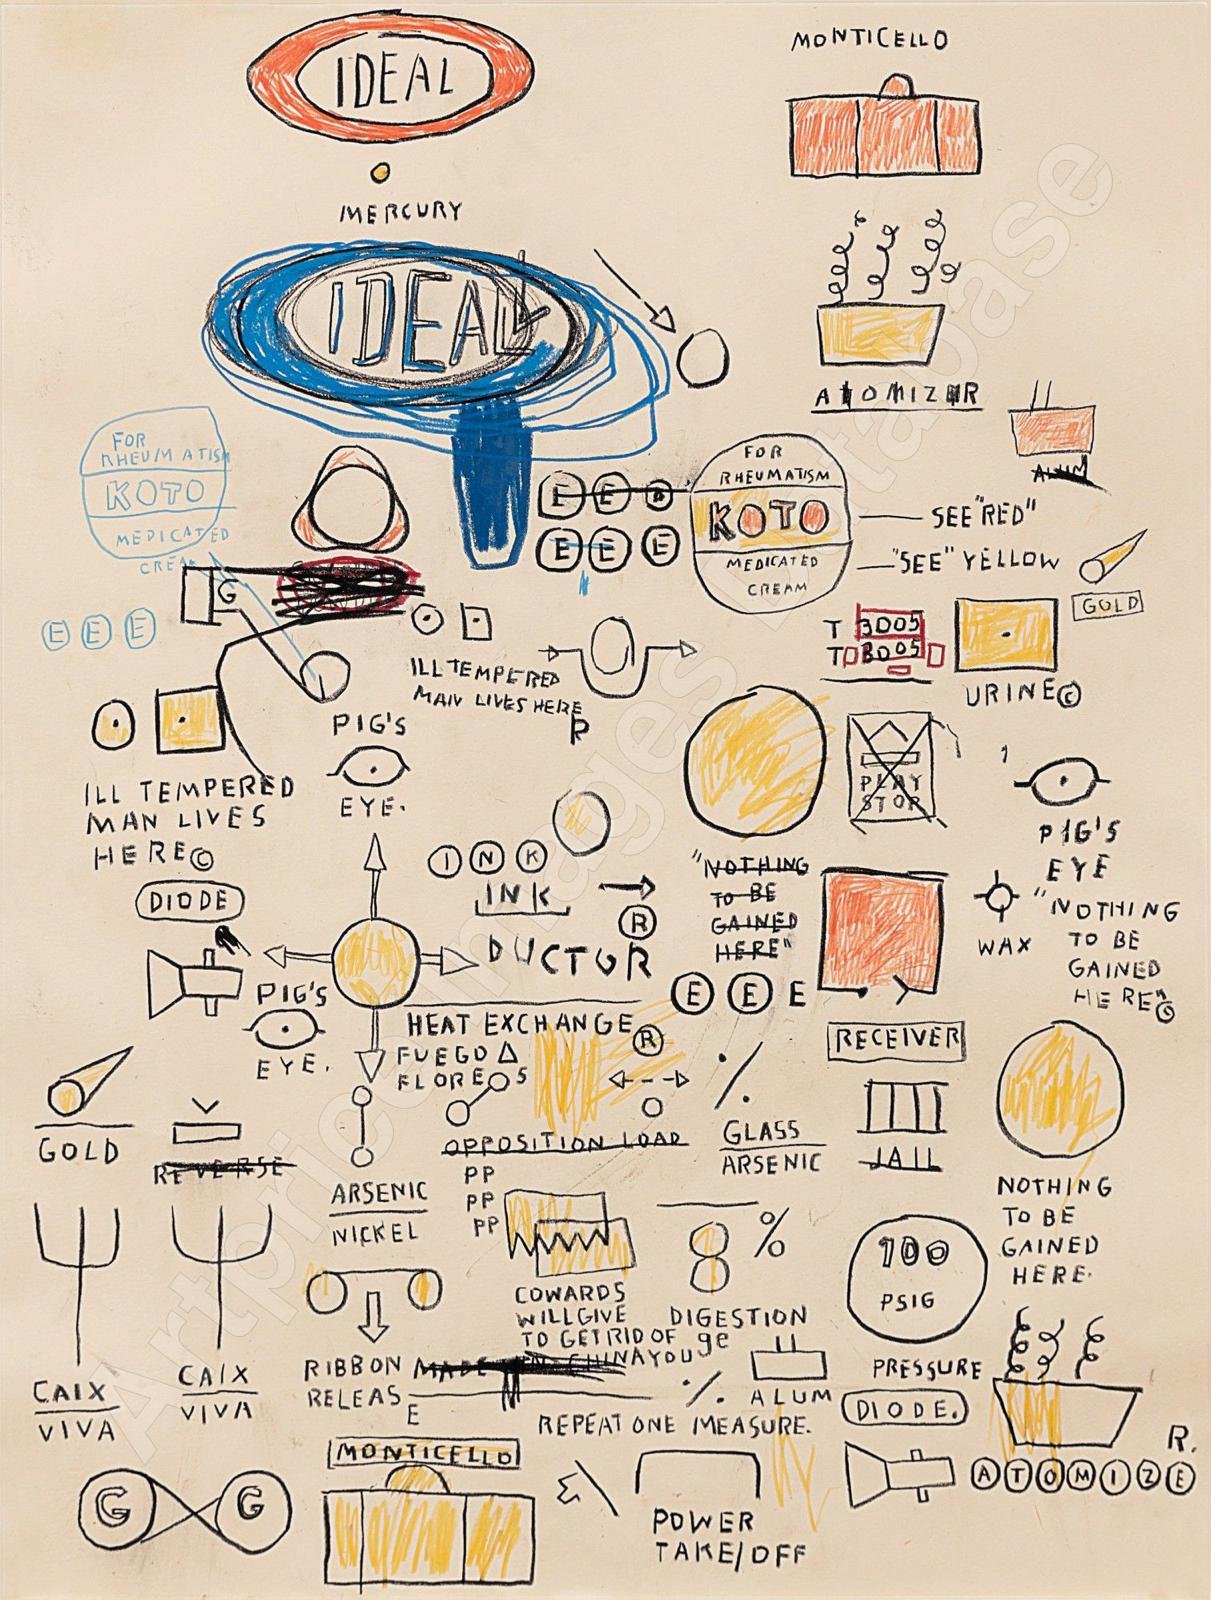 IDEAL
MONTICELLO
MERCURY
IDEAL
ATOMIZER
ALUM
FOR
RHEUMATISM
KOTO
MEDICATED
CREAM
FOR
RHEUMATISM
KOTO
MEDICATED
CREAM
E E E
E E E
SEE "RED"
"SEE" YELLOW
GOLD
G
E E E
T 3005
T 3005
URINE©
ILL TEMPERED
MAN LIVES HERE
R
PIG'S
EYE.
ILL TEMPERED
MAN LIVES
HERE©
PLAY
STOP
PIG'S
EYE
INK
INK
R
DUCTOR
"NOTHING
TO BE
GAINED
HERE"
WAX
"NOTHING
TO BE
GAINED
HERE"©
DIODE
PIG'S
EYE.
E E E
HEAT EXCHANGE
R
FUEGO
FLOREOS
RECEIVER
GOLD
REVERSE
OPPOSITION LOAD
GLASS
ARSENIC
JAIL
ARSENIC
NICKEL
PP
PP
PP
8 %
DIGESTION
NOTHING
TO BE
GAINED
HERE.
100
PSIG
PRESSURE
COWARDS
WILL GIVE
TO GET RID OF
MADE IN CHINA YOU
ge
RIBBON
RELEAS
E
CAIX
VIVA
CAIX
VIVA
ALUM
REPEAT ONE MEASURE.
DIODE.
R.
ATOMIZE
MONTICELLO
G G
POWER
TAKE/OFF
Artprice Images Database